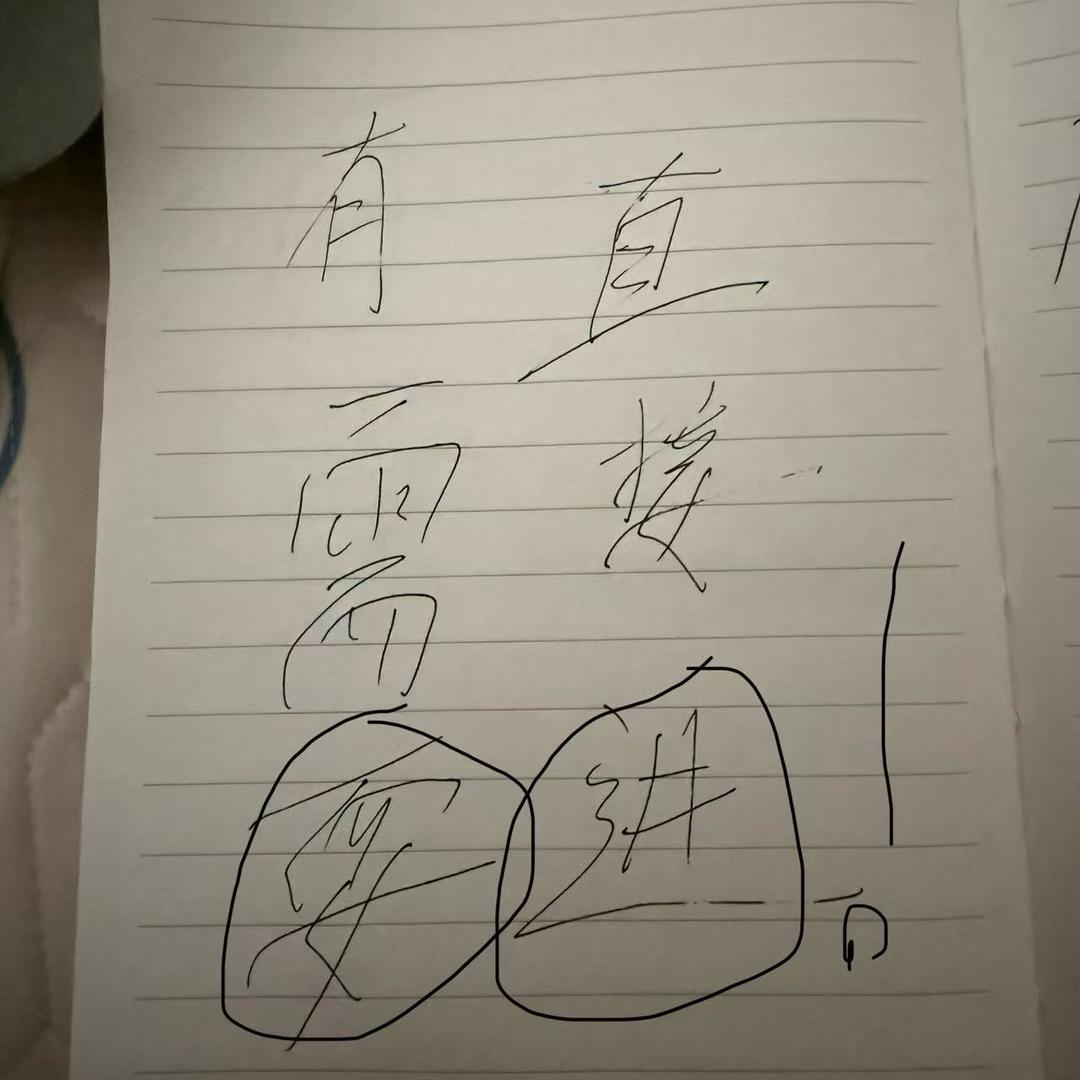 有需要
直接进